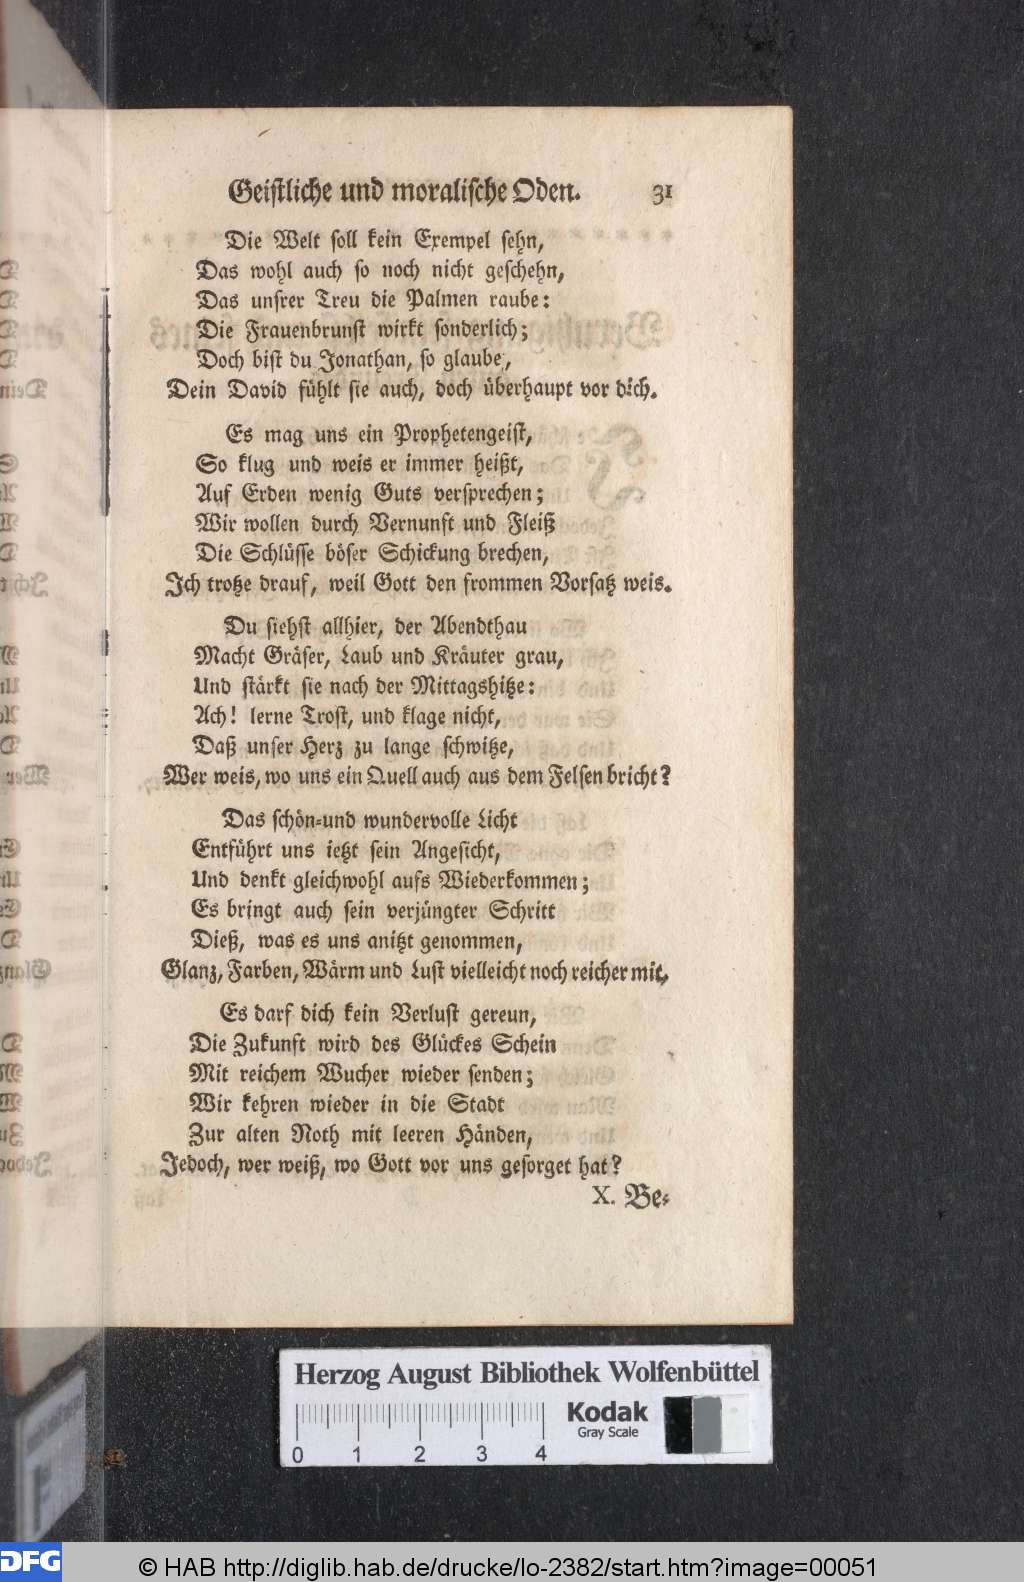 Geistliche und moralische Oden. 31
Die Welt soll kein Exempel sehn,
Das wohl auch so noch nicht geschehn,
Das unsrer Treu die Palmen raube:
Die Frauenbrunst wirkt sonderlich;
Doch bist du Jonathan, so glaube,
Dein David fühlt sie auch, doch überhaupt vor dich.
Es mag uns ein Prophetengeist,
So klug und weis er immer heißt,
Auf Erden wenig Guts versprechen;
Wir wollen durch Vernunft und Fleiß
Die Schlüsse böser Schickung brechen,
Ich trotze drauf, weil Gott den frommen Vorsatz weis.
Du siehst allhier, der Abendthau
Macht Gräser, Laub und Kräuter grau,
Und stärkt sie nach der Mittagshitze:
Ach! lerne Trost, und klage nicht,
Daß unser Herz zu lange schwitze,
Wer weis, wo uns ein Quell auch aus dem Felsen bricht?
Das schön-und wundervolle Licht
Entführt uns ietzt sein Angesicht,
Und denkt gleichwohl aufs Wiederkommen;
Es bringt auch sein verjüngter Schritt
Dieß, was es uns anitzt genommen,
Glanz, Farben, Wärm und Lust vielleicht noch reicher mit.
Es darf dich kein Verlust gereun,
Die Zukunft wird des Glückes Schein
Mit reichem Wucher wieder senden;
Wir kehren wieder in die Stadt
Zur alten Noth mit leeren Händen,
Jedoch, wer weiß, wo Gott vor uns gesorget hat?
X. Be-
Herzog August Bibliothek Wolfenbüttel
Kodak
Gray Scale
0 1 2 3 4
DFG
© HAB http://diglib.hab.de/drucke/lo-2382/start.htm?image=00051